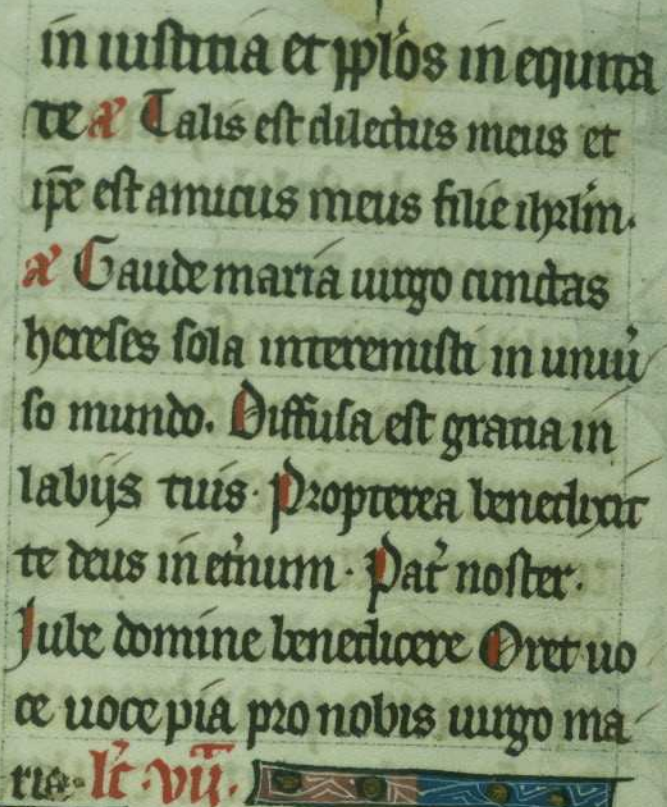 in iusticia et pp̄l̄os in equita
te aᷓ Talis est dilectus meus et
ip̄e est amicus meus filie ihrl̄m.
aᷓ Gaude maria uirgo cunctas
hereses sola interemisti in uniuᷓ
so mundo. Diffusa est gratia in
labijs tuis. Propterea benedixit
te deus in etᷓnum. Patᷓ noster.
Iube domine benedicere Oret uo
ce uoce pia pro nobis uirgo ma
ria. lcᷓ. vij̄.